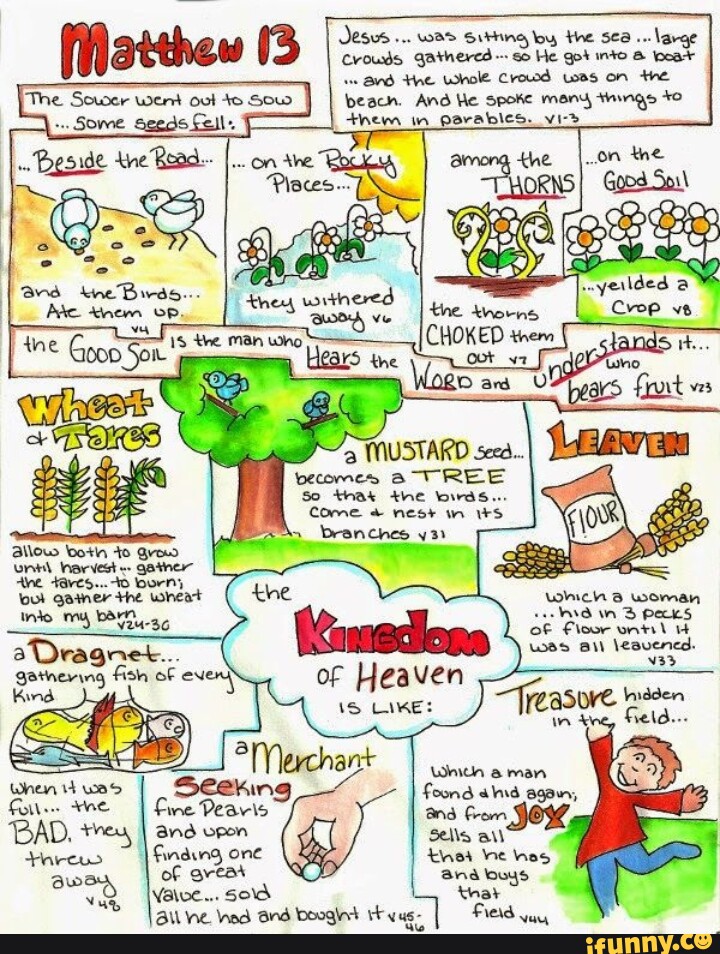 Matthew 13
Jesus ... was sitting by the sea ... large
crowds gathered ... so He got into a boat
... and the whole crowd was on the
beach. And He spoke many things to
them in parables. v1-3
The Sower went out to sow
... Some seeds fell:
... Beside the Road...
and the Birds...
Ate them up.
v4
... on the Rocky
Places...
they withered
away v6
among the
THORNS
the thorns
CHOKED them
out v7
...on the
Good Soil
...yeilded a
Crop v8
the GOOD Soil is the man who Hears the WORD and understands it...
who
bears fruit v23
Wheat
& Tares
allow both to grow
until harvest... gather
the tares... to burn;
but gather the wheat
into my barn
v24-30
a MUSTARD seed...
becomes a TREE
so that the birds...
come & nest in its
branches v31
LEAVEN
FLOUR
which a woman
...hid in 3 pecks
of flour until it
was all leavened.
v33
the
Kingdom
of Heaven
is like:
a Dragnet...
gathering fish of every
Kind
when it was
full... the
BAD, they
threw
away
v48
a Merchant
Seeking
fine Pearls
and upon
finding one
of great
value... sold
all he had and bought it v45-
46
Treasure hidden
in the field...
which a man
found & hid again;
and from JOY
sells all
that he has
and buys
that
field v44
ifunny.co